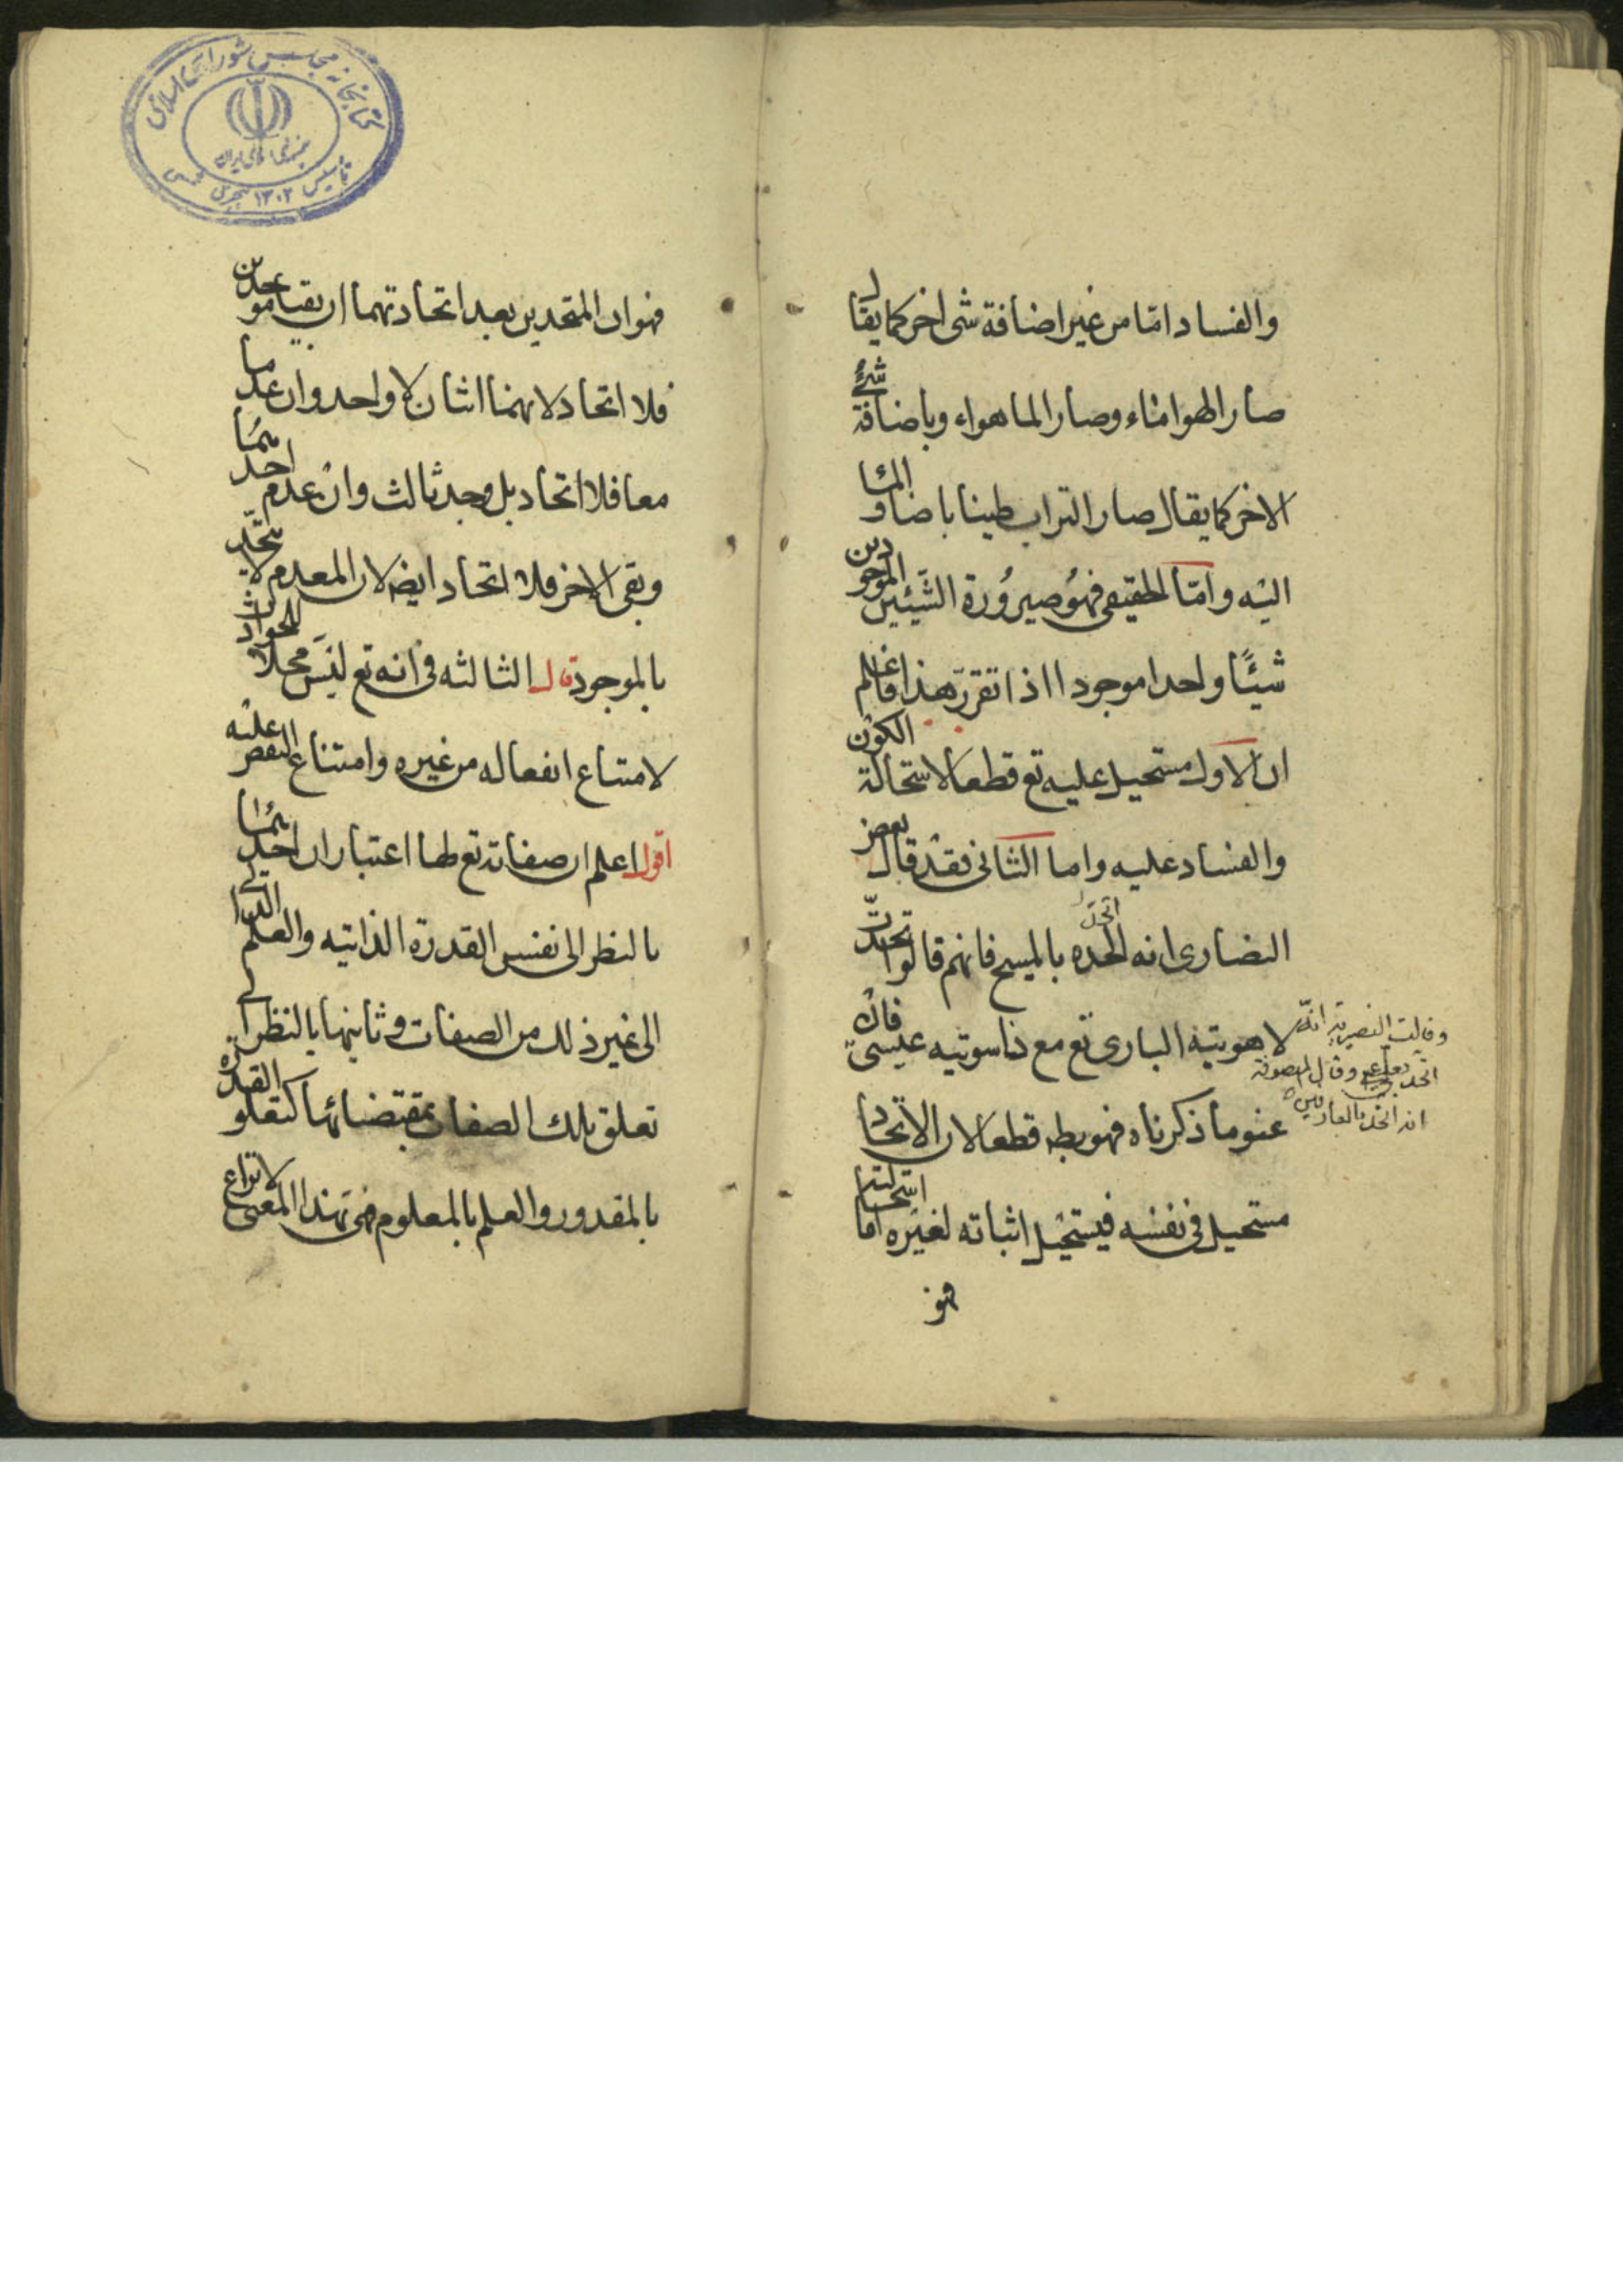 والفساد امّا من غير اضافة شی اخر كما يقال
صار الهوا ماء وصار الما هواء وباضافة شیٔ
الاخر كما يقال صار التراب طينا باضاف المٔا
اليه وامّا الحقيقی فهُو صيرُورة الشّيئين الموجودين
شيئًا واحدا موجودا اذا تقرر هذا فاعلم
ان الاول مستحيل عليه تع قطعا لاستحالة الكون
والفساد عليه واما الثانی فقد قال بعض
النصاری انه اتحد بالمسيح فانهم قالوا اتحدّت
لاهوتيه الباری تع مع ناسوتيه عيسی فان
عنو ما ذكرناه فهو بط قطعا لان الاتحاد
مستحيل فی نفسه فيستحيل اثباته لغيره اما استحالته
فهو
وقالت النصيرية انه
اتحد بعلی ع وقال المتصوفة
انه اتحد بالعارفين
كتابخانه مجلس شورای اسلامی
جمهوری اسلامی ايران
تأسيس ۱۳۰۲ هجری شمسی
فهو ان المتحدين بعد اتحادتهما ان بقيا موجدين
فلا اتحاد لانهما اثنان لا واحد وان عدما
معا فلا اتحاد بل وجد ثالث وان عدم احدهما
وبقی الاخر فلا اتحاد ايضه لان المعدم لا يتّحد
بالموجود قال الثالثه فی انه تع ليس محلا للحوادث
لامتناع انفعاله من غيره وامتناع النقص عليه
اقول اعلم ان صفاته تع لها اعتباران احديهما
بالنظر الی نفس القدرة الذاتيه والعلم الذا
الی غير ذلك من الصفات وثانيهما بالنظر الی
تعلق تلك الصفات بمقتضائها كتعلو القدرة
بالمقدور والعلم بالمعلوم فهی بهذا المعنی لا نزاع